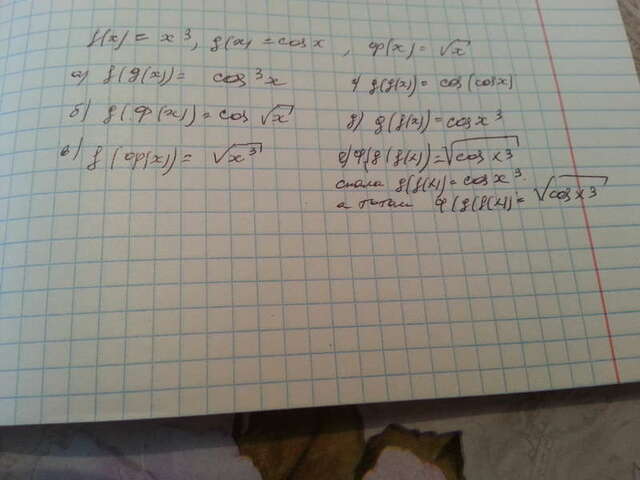 f(x) = x³, g(x) = cos x, φ(x) = √x
а) f(g(x)) = cos³x
б) g(φ(x)) = cos √x
в) f(φ(x)) = √x³
г) g(g(x)) = cos(cos x)
д) g(f(x)) = cos x³
е) φ(g(f(x)) = √cos x³
сначала g(f(x)) = cos x³
а потом φ(g(f(x)) = √cos x³